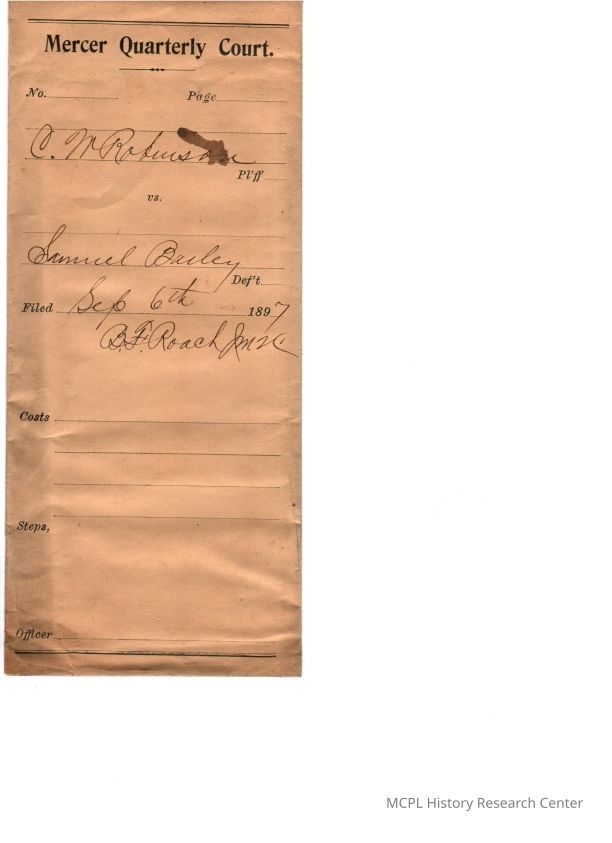 Mercer Quarterly Court.
No. Page
C. M Robinson
Pl'ff
vs.
Samuel Bailey
Def't.
Filed Sep 6th 1897
B.F. Roach
Costs
Steps,
Officer
MCPL History Research Center